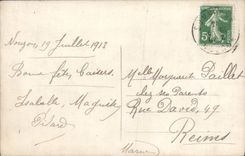 Nouzon 19 Juillet 1913
Bonne fête, baisers.
Isabelle Maguitte
Mlle Marguerite Paillet
chez ses Parents
Rue David, 49
Reims
Marne
5